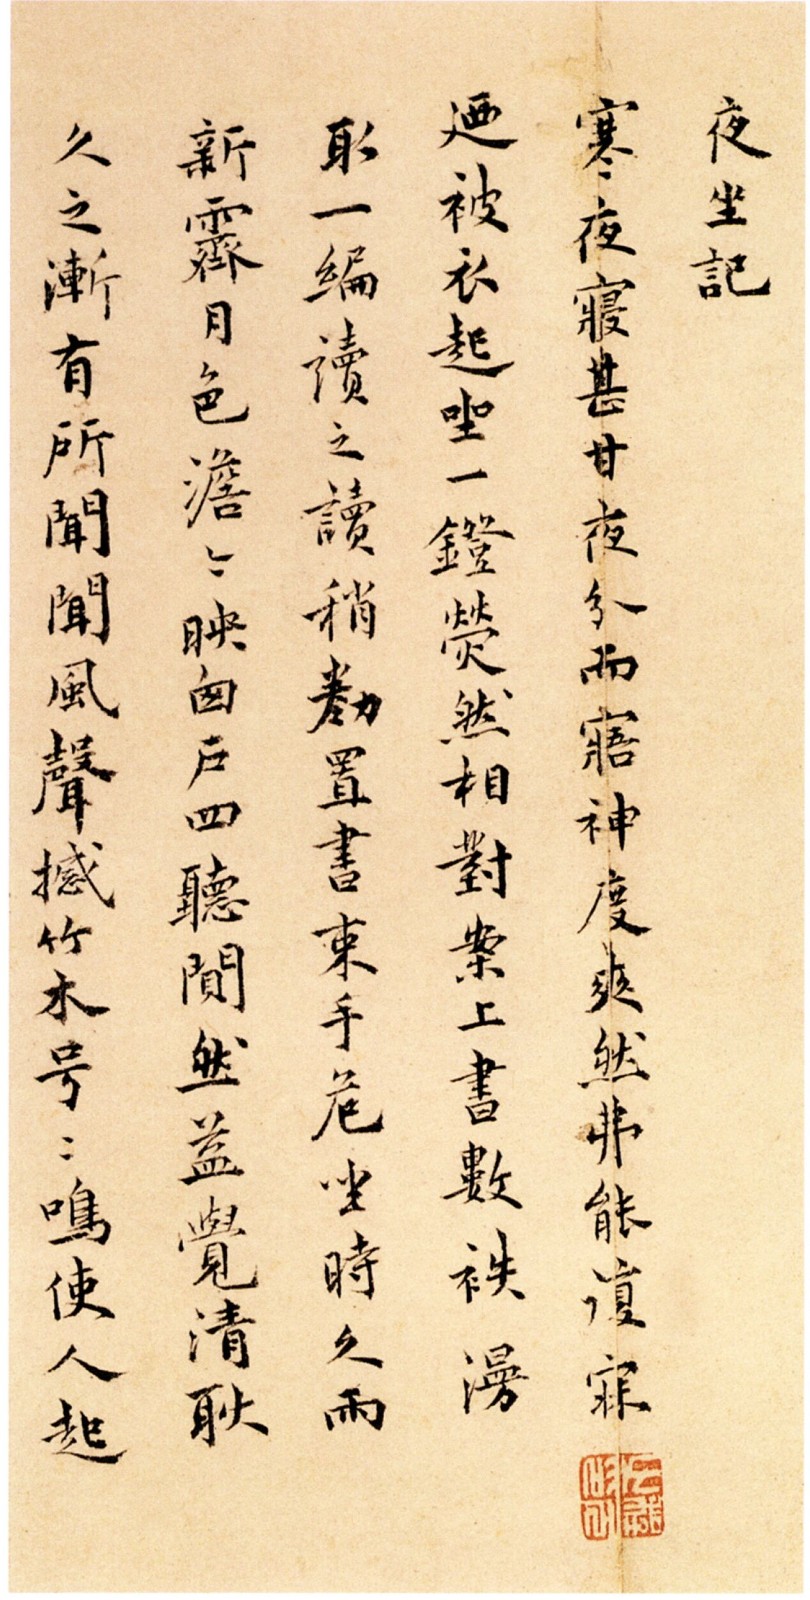 夜坐記
寒夜寢甚甘夜分而寤神度爽然弗能復寐
廼被衣起坐一鐙熒然相對案上書數袟漫
取一編讀之讀稍勌置書束手危坐時久雨
新霽月色澹〻映囪戶四聽閴然葢覺清耿
久之漸有所聞聞風聲撼竹木号〻鳴使人起